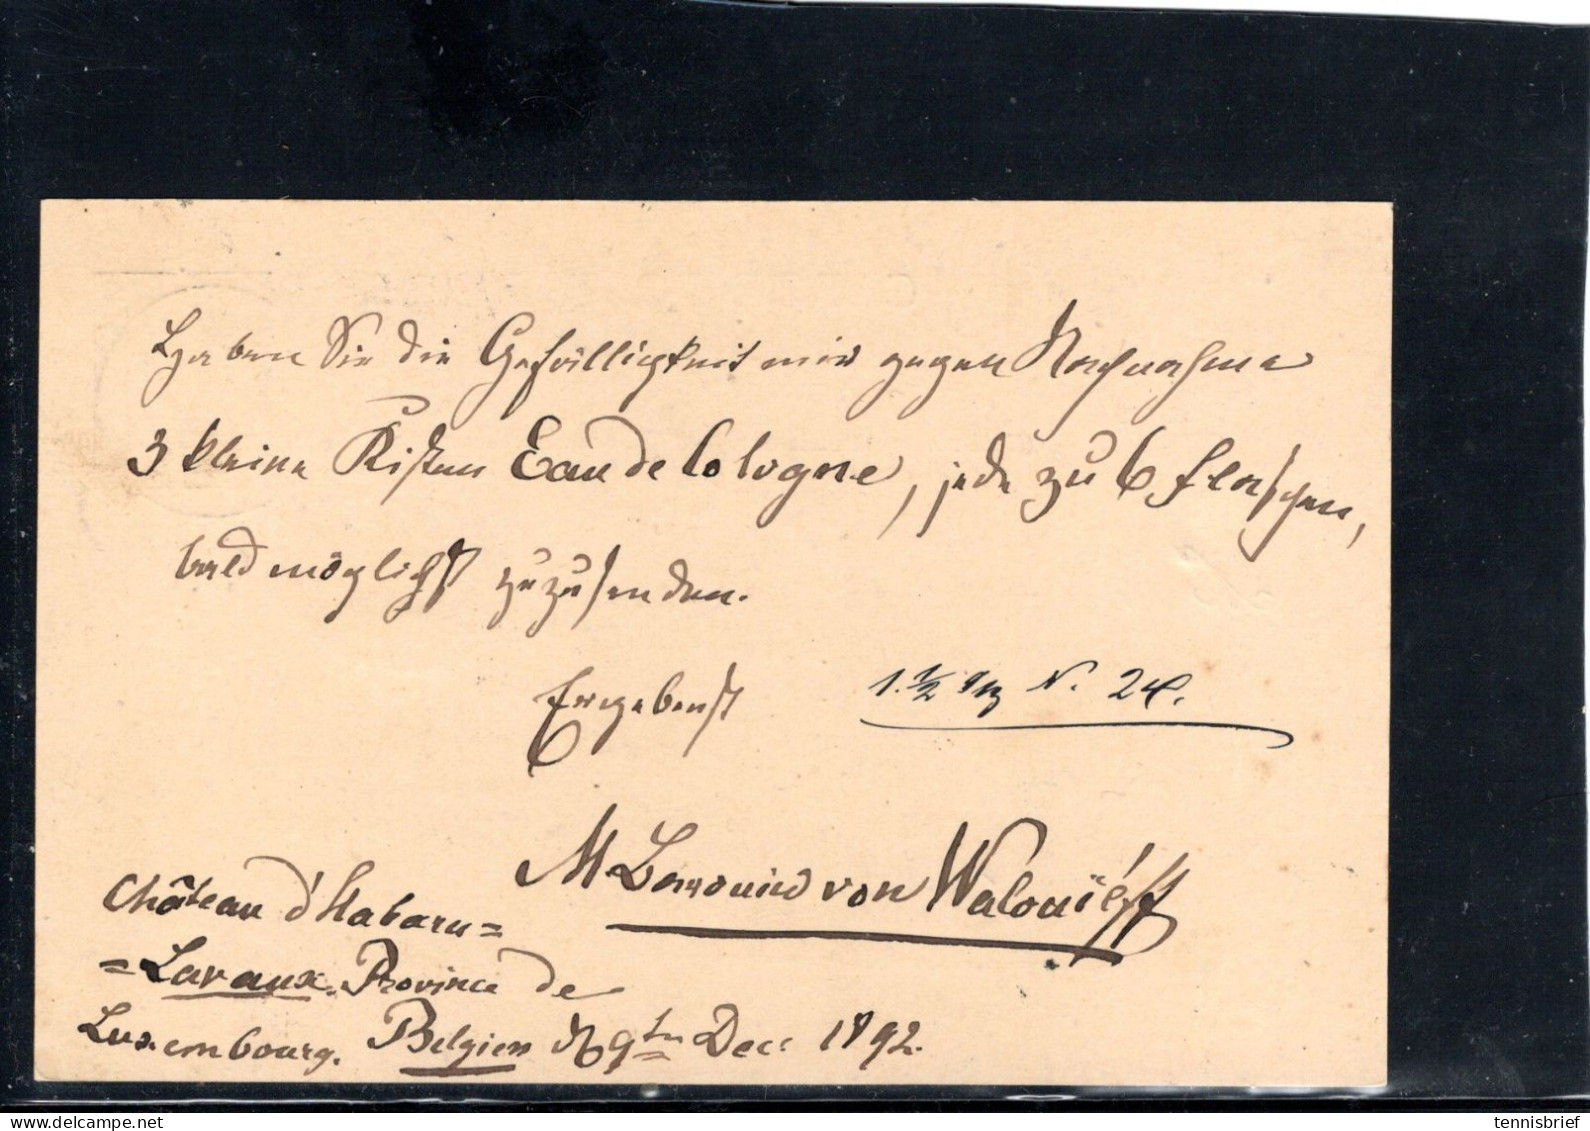 Haben Sie die Gefälligkeit mir gegen Nachnahme
3 kleine Kisten Eau de Cologne, jede zu 6 Flaschen,
baldmöglichst zuzusenden.
Ergebenst
1. 1/2 N. 24.
M Baronin von Walouieff
Château d'Habaru=
=Lavaux. Province de
Luxembourg. Belgien d 9ten Dec: 1892.
www.delcampe.net
tennisbrief